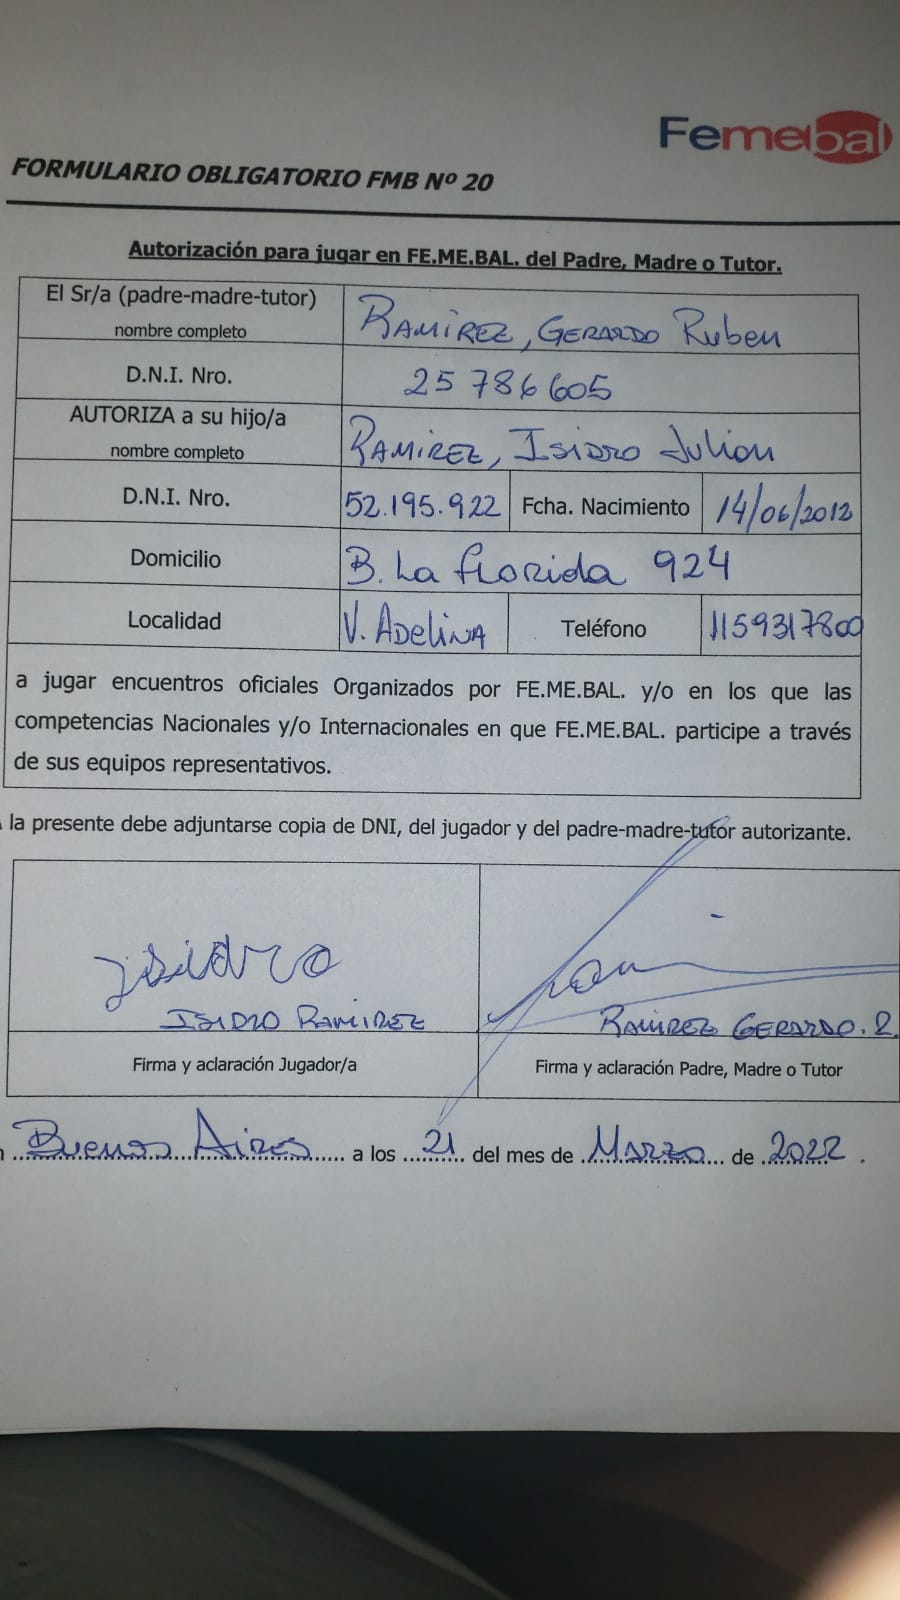 Femebal
FORMULARIO OBLIGATORIO FMB Nº 20
Autorización para jugar en FE.ME.BAL. del Padre, Madre o Tutor.
El Sr/a (padre-madre-tutor)
nombre completo
RAMIREZ, GERARDO Ruben
D.N.I. Nro.
25 786 605
AUTORIZA a su hijo/a
nombre completo
RAMIREZ, ISIDRO Julian
D.N.I. Nro.
52.195.922
Fcha. Nacimiento
14/06/2012
Domicilio
B. La florida 924
Localidad
V. ADELINA
Teléfono
1159317800
a jugar encuentros oficiales Organizados por FE.ME.BAL. y/o en los que las
competencias Nacionales y/o Internacionales en que FE.ME.BAL. participe a través
de sus equipos representativos.
la presente debe adjuntarse copia de DNI, del jugador y del padre-madre-tutor autorizante.
Isidro
ISIDRO RAMIREZ
RAMIREZ GERARDO. R.
Firma y aclaración Jugador/a
Firma y aclaración Padre, Madre o Tutor
Buenos Aires a los 21 del mes de MARZO de 2022.